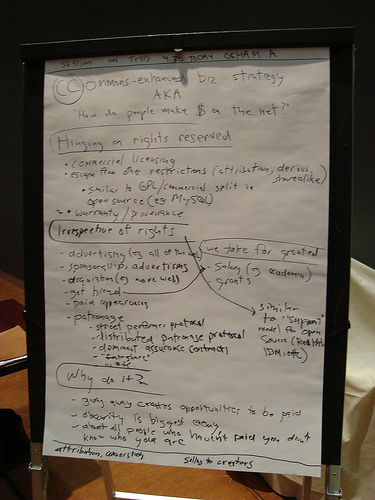 SESSION ON THIS 4:30 TODAY OCKHAM A
CCommons-enhanced biz strategy
AKA
"How do people make $ on the net?"
Hinging on rights reserved
• commercial licensing
• escape from other restrictions (attribution, derivs,
sharealike)
• similar to GPL/commercial split in
open source (eg MySQL)
~ • warranty/provenance
Irrespective of rights
we take for granted
- advertising (eg all of the
- sponsorship, advertising
- Salary (eg academia)
- grants
- acquisition (eg
- get hired
- paid appearances
- patronage
- street performer protocol
- distributed patronage protocol
- dominant assurance contracts
similar
to "support"
model for open
source (Red Hat,
IBM etc)
Why do it?
- giving away creates opportunities to be paid
- obscurity is biggest enemy
- almost all people who haven't paid you don't
know who you are
attribution,
selling to creators